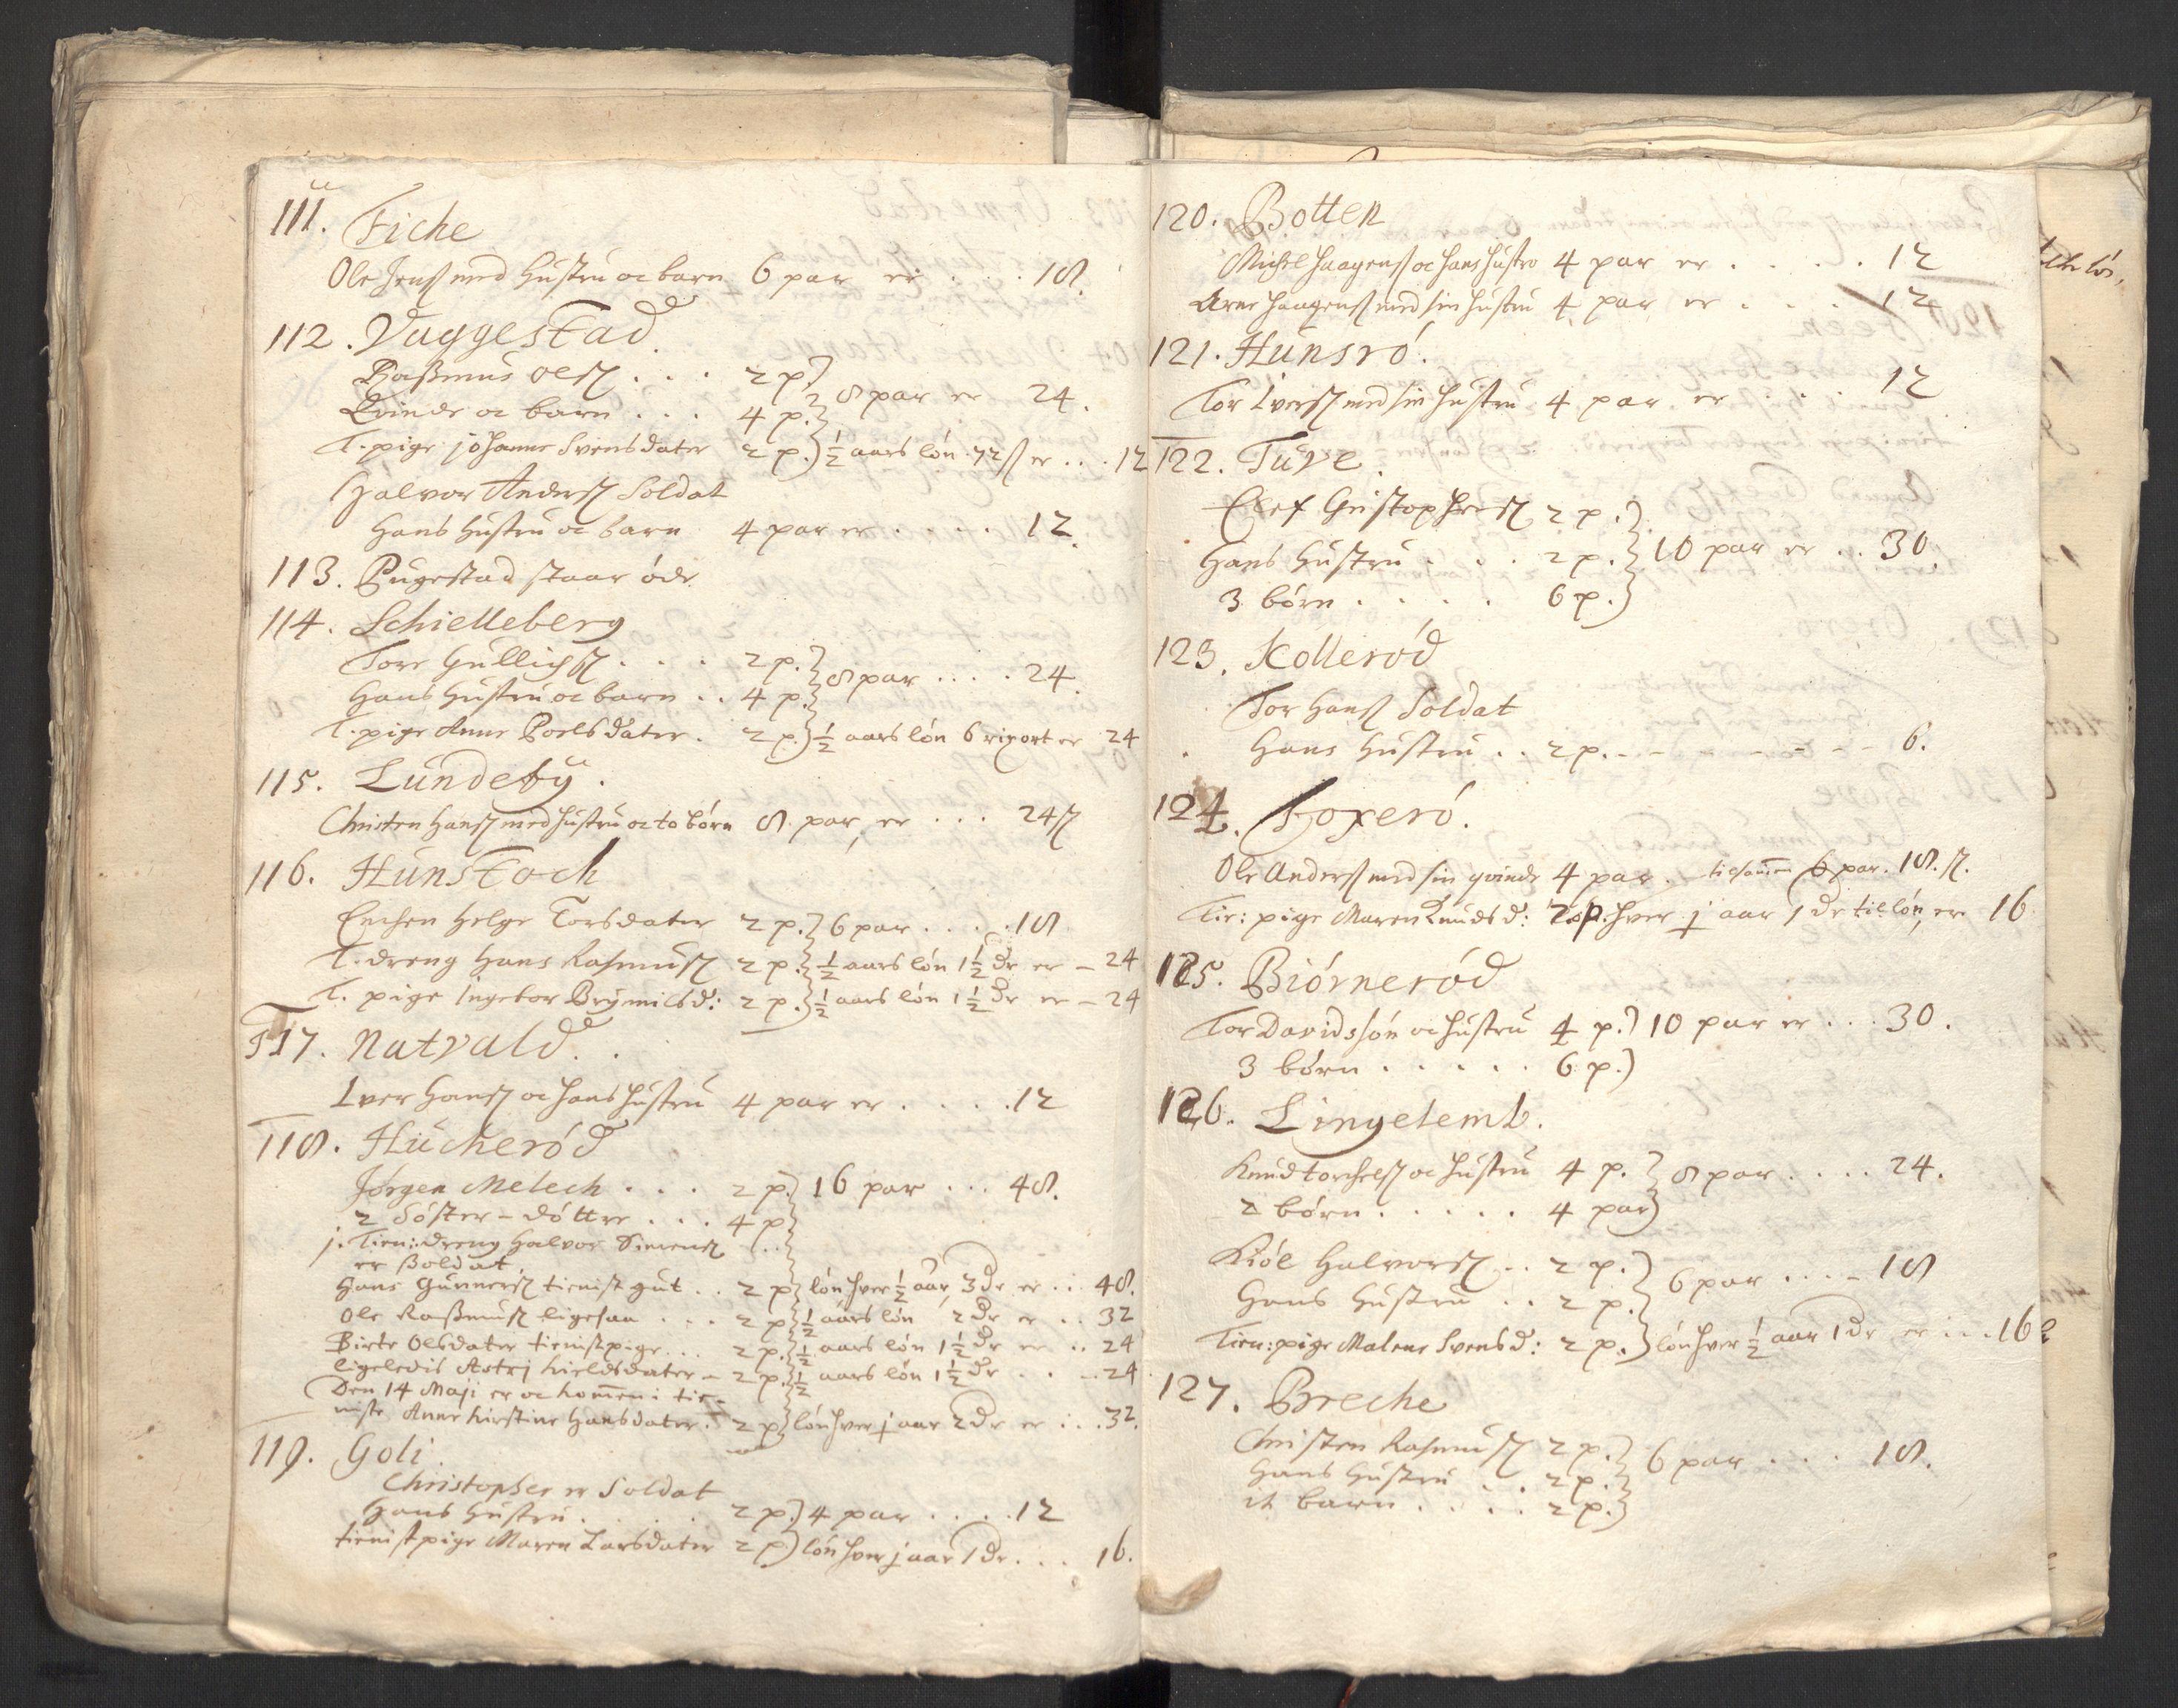 111. Fiche
Ole Jenß med hustru oc barn 6 par er . . . 18.
112. Vaggestad
Raßmus Olsß . . . 2 p.} 8 par er 24.
Qvinde oc barn . . . 4 p.}
T. pige Johanne Svensdater 2 p.) ½ aars lön 72 ß er . . . 12
Halvor Andersß Soldat
Hans hustru oc barn 4 par er . . . . 12.
113. Bugestad staar öde.
114. Schielleberg
Tore Gullichsß . . . . 2 p.} 8 par . . . . 24.
Hans hustru oc barn . . 4 p.}
T. pige Anne Poelsdater . 2 p.) ½ aars lön 6 rixort er 24
115. Lundebÿ.
Christen Hansß med hustru oc to börn 8 par, er . . . 24 ß
116. Hunstoch
Enchen Helge Torsdater 2 p.} 6 par . . . . 18
T. dreng Hans Rasmusß 2 p.} ½ aars lön 1½ dr er – 24
T. pige Ingebor Brÿnilsd: 2 p.} ½ aars lön 1½ dr er – 24
117. Natvald . .
Iver Hansß oc hans hustru 4 par er . . . . 12
118. Hucheröd
Jörgen Melech . . . 2 p.} 16 par . . . 48.
2 Söster-döttre . . . 4 p}
j. Tien: dreng Halvor Simensß . .
er Soldat
Hans Gunnersß tienist gut . . 2 p} lön hver ½ aar, 3 dr er . . . 48.
Ole Raßmusß ligesaa . . . 2 p} ½ aars lön 2 dr er . . 32
Birte Olsdater tienistpige . . . 2 p.} ½ aars lön 1½ dr er . . 24
ligeledis Astrj Kieldsdater – 2 p.} ½ aars lön 1½ dr . . – 24
Den 14 Maji er oc kommen i tie-
niste Anne Kirstine Hansdater. 2 p} lön hver j aar 2 dr er . . . 32.
119. Goli.
Christopher er Soldat
Hans hustru . . . . . 2 p.} 4 par . . . . 12
tienistpige Maren Larsdater 2 p) lön hver j aar 1 dr . . . 16.
120. Botten
Michel Haagensß oc hans hustro 4 par er . . . . 12
Arne Haagensß med sin hustru 4 par er . . . 12
121. Hunsrö.
Tor Iversß med sin hustru 4 par er . . . 12
122. Tuve.
Elef Christophersß 2 p.}
Hans hustru . . . 2 p.} 10 par er . . 30.
3 börn . . . . 6 p.}
123. Kolleröd
Tor Hansß Soldat
Hans hustru . . 2 p. – – – – – – 6.
124. Foxerö.
Ole Andersß med sin qvinde 4 par . tilsamen 6 par. 18. ß.
Tie: pige Maren Knudsd: 2 p. hver j aar 1 dr til lön, er 16
125. Biörneröd
Tor Davidssön oc hustru 4 p.) 10 par er . . . 30.
3 börn . . . . . 6 p.)
126. Lingelemb.
Knud Torchelsß oc hustru 4 p.} 8 par . . . . 24.
2 börn . . . . . 4 par}
Kiöl Halvorsß . . 2 p.} 6 par . . . – 18
Hans hustru . . 2 p.}
Tien: pige Malene Svensd: 2 p.} lön hver ½ aar 1 dr er . . . 16
127. Breche
Christen Rasmusß 2 p.} 6 par . . . . 18.
Hans hustru . . . 2 p.}
it barn . . . . 2 p.}